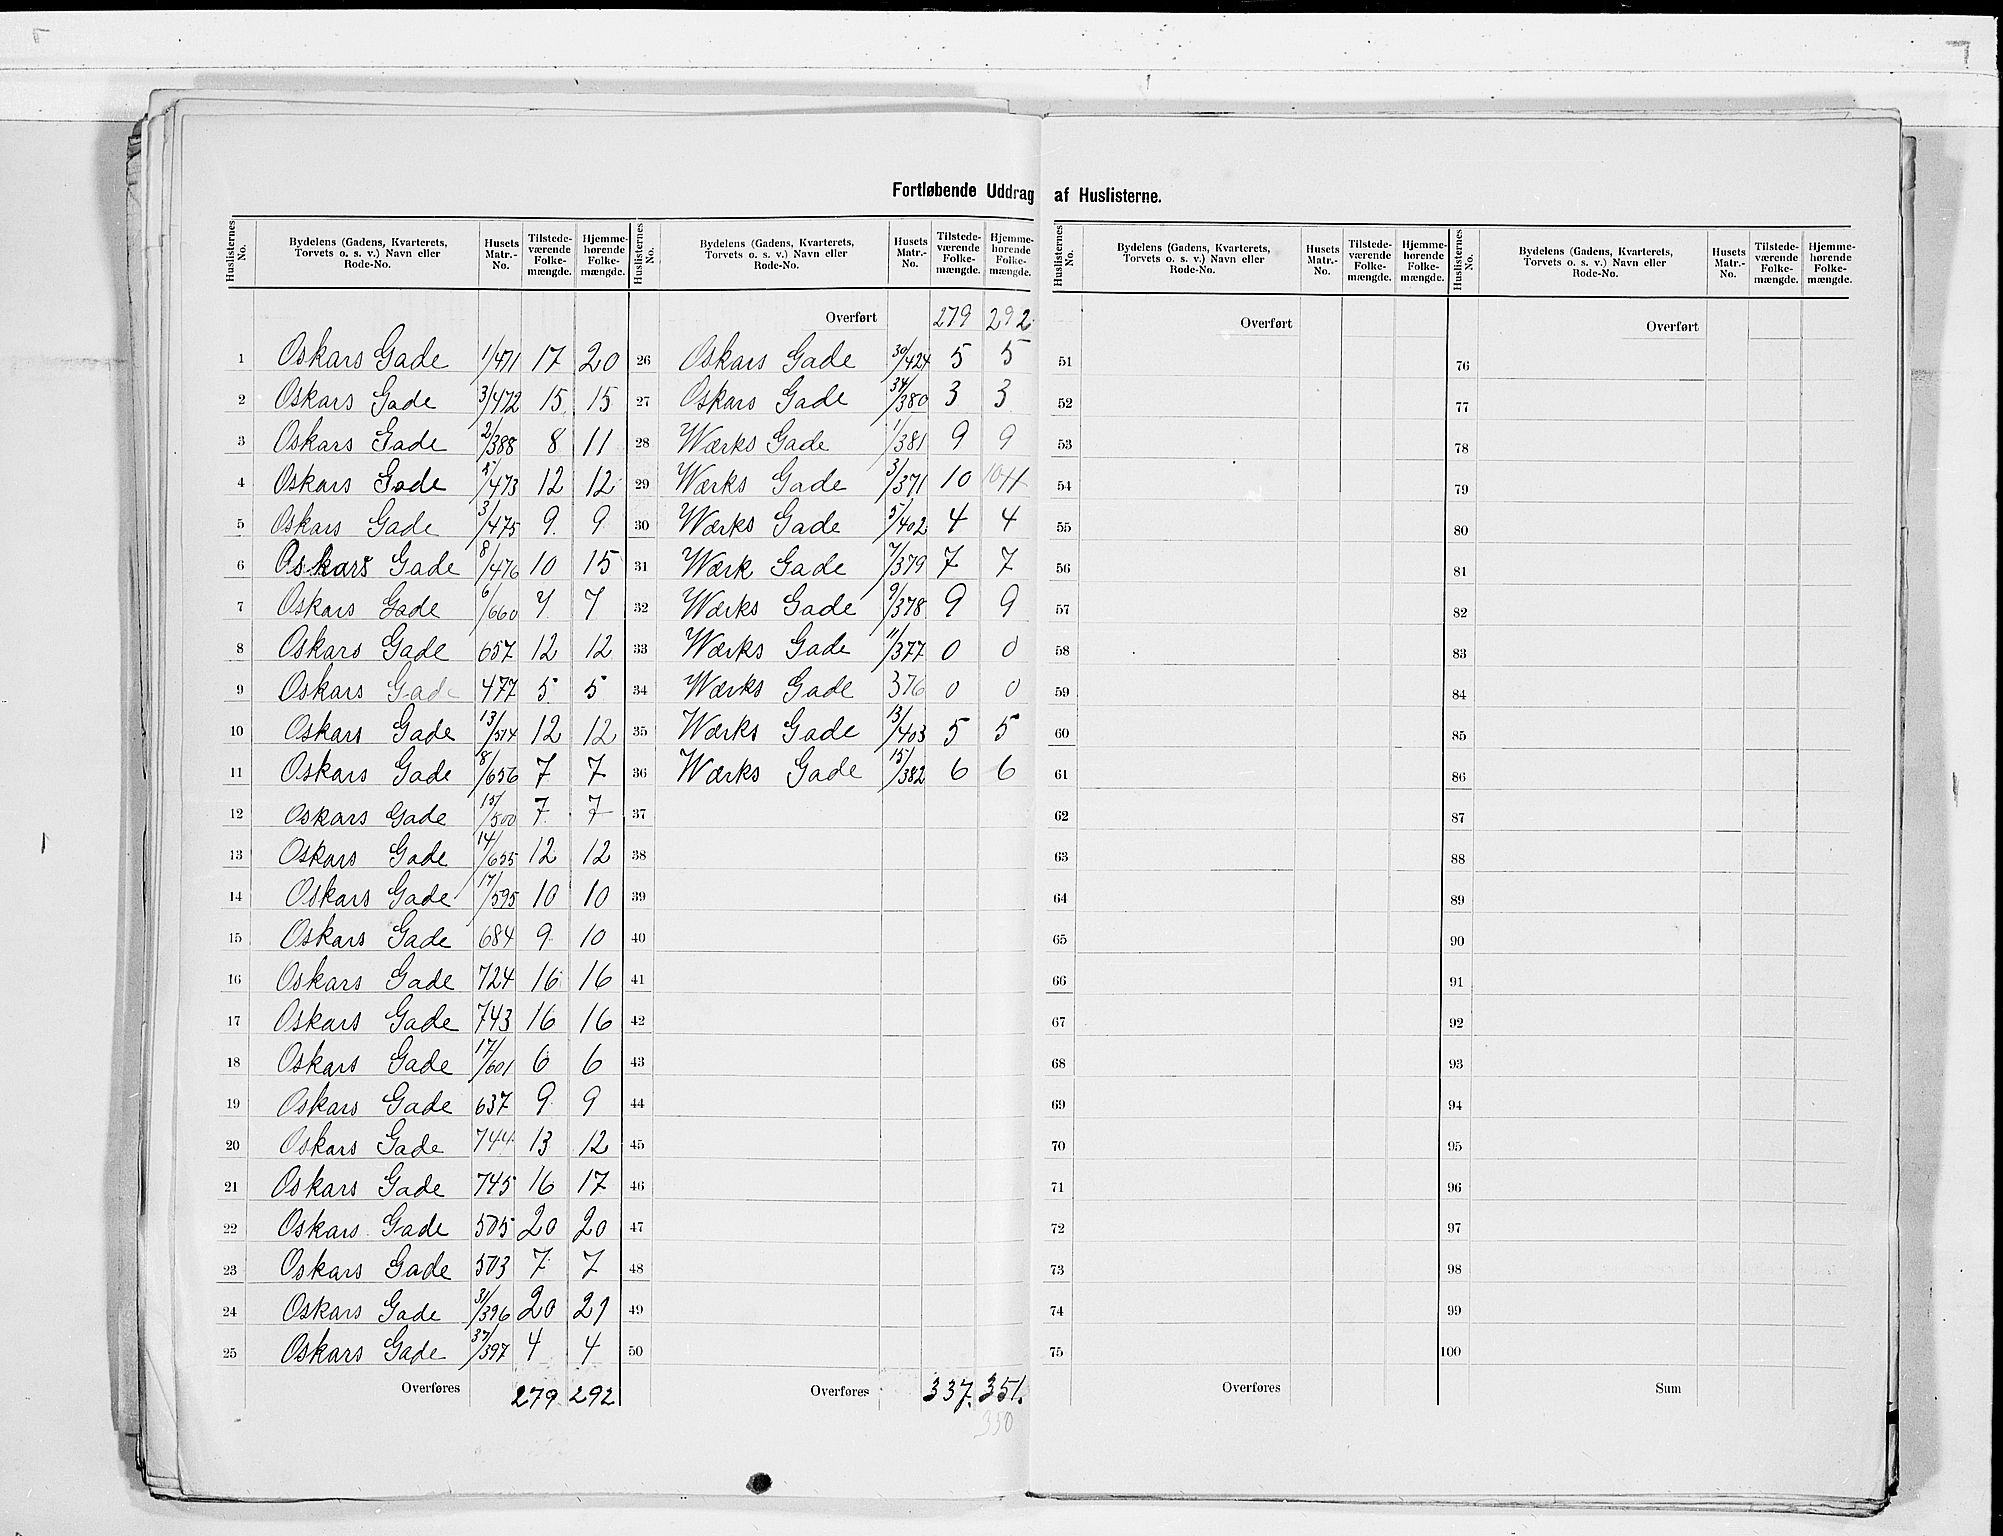 Fortløbende Uddrag af Huslisterne.
Huslisternes No. | Bydelens (Gadens, Kvarterets, Torvets o. s. v.) Navn eller Rode-No. | Husets Matr.-No. | Tilstedeværende Folkemængde. | Hjemmehørende Folkemængde.
1 Oskars Gade 1/471 17 20
2 Oskars Gade 3/472 15 15
3 Oskars Gade 2/388 8 11
4 Oskars Gade 5/473 12 12
5 Oskars Gade 3/475 9 9
6 Oskars Gade 8/476 10 15
7 Oskars Gade 6/660 7 7
8 Oskars Gade 657 12 12
9 Oskars Gade 477 5 5
10 Oskars Gade 13/514 12 12
11 Oskars Gade 8/656 7 7
12 Oskars Gade 15/500 7 7
13 Oskars Gade 14/655 12 12
14 Oskars Gade 17/595 10 10
15 Oskars Gade 684 9 10
16 Oskars Gade 724 16 16
17 Oskars Gade 743 16 16
18 Oskars Gade 17/601 6 6
19 Oskars Gade 637 9 9
20 Oskars Gade 744 13 12
21 Oskars Gade 745 16 17
22 Oskars Gade 505 20 20
23 Oskars Gade 503 7 7
24 Oskars Gade 31/396 20 21
25 Oskars Gade 37/397 4 4
Overføres 279 292
Huslisternes No. | Bydelens (Gadens, Kvarterets, Torvets o. s. v.) Navn eller Rode-No. | Husets Matr.-No. | Tilstedeværende Folkemængde. | Hjemmehørende Folkemængde.
Overført 279 292
26 Oskars Gade 30/424 5 5
27 Oskars Gade 34/380 3 3
28 Wærks Gade 1/381 9 9
29 Wærks Gade 3/371 10 10 11
30 Wærks Gade 5/402 4 4
31 Wærk Gade 7/379 7 7
32 Wærks Gade 9/378 9 9
33 Wærks Gade 11/377 0 0
34 Wærks Gade 376 0 0
35 Wærks Gade 13/403 5 5
36 Wærks Gade 15/382 6 6
37
38
39
40
41
42
43
44
45
46
47
48
49
50
Overføres 337. 351.
350
Huslisternes No. | Bydelens (Gadens, Kvarterets, Torvets o. s. v.) Navn eller Rode-No. | Husets Matr.-No. | Tilstedeværende Folkemængde. | Hjemmehørende Folkemængde.
Overført
51
52
53
54
55
56
57
58
59
60
61
62
63
64
65
66
67
68
69
70
71
72
73
74
75
Overføres
Huslisternes No. | Bydelens (Gadens, Kvarterets, Torvets o. s. v.) Navn eller Rode-No. | Husets Matr.-No. | Tilstedeværende Folkemængde. | Hjemmehørende Folkemængde.
Overført
76
77
78
79
80
81
82
83
84
85
86
87
88
89
90
91
92
93
94
95
96
97
98
99
100
Sum